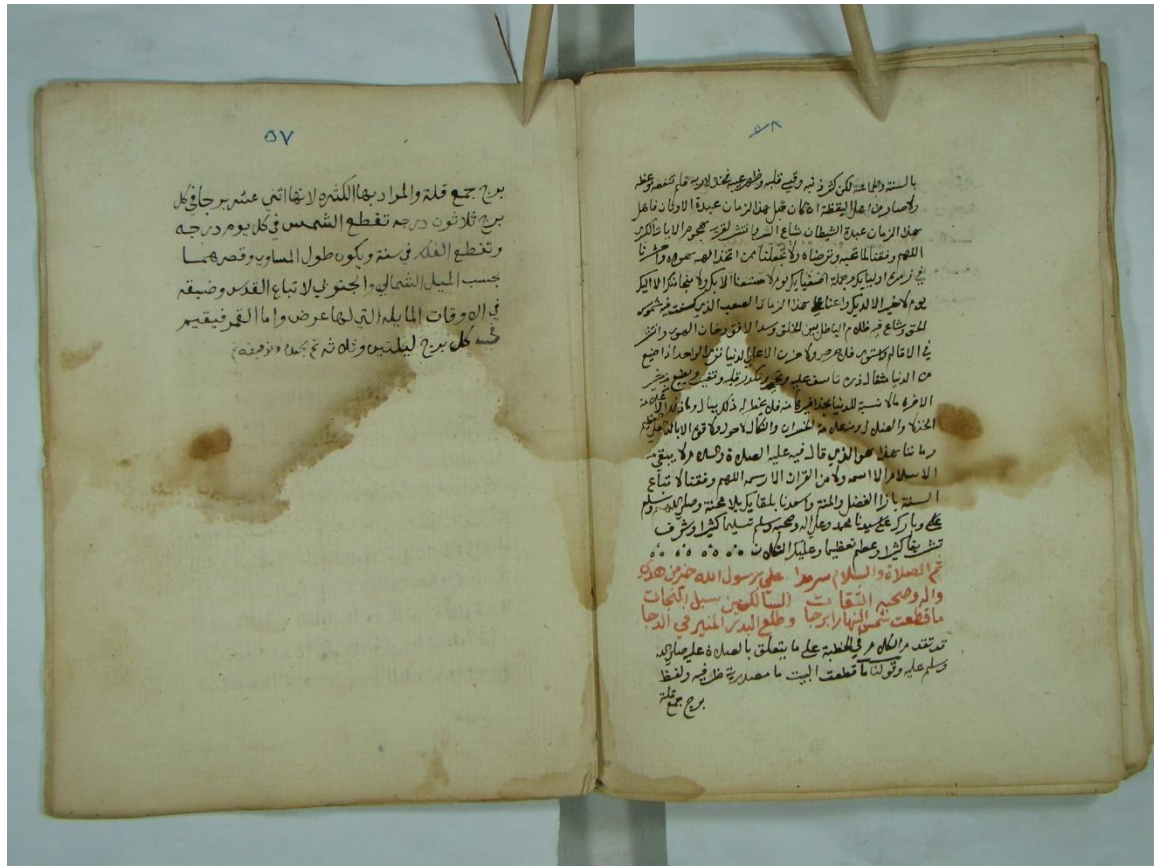 ٥٨
بالسنة والجماعة لكن كثر ذنبه وقسي قلبه وظهر عيبه فلم تنفعه موعظه
ولا صار من اهل اليقظة اذ كان قبل هذا الزمان عبدة الاوثان فاهل
هذا الزمان عبدة الشيطان شاع الشر وانتشر
اللهم وفقنا لما تحبه وترضاه ولا تجعلنا ممن اتخذ الهه هواه واحشرنا
في زمرة اوليايك وجملة اصفيايك يوم لا الا بك ولا منجا منك الا اليك
يوم لا خير الا لديك واعنا على هذا الزمان الصعب الذي كسفت فيه شموس
الحق وشاع فيه ظلام الباطل بين الخلق وسد الافق دخان الهوى وانتشر
في الاقاليم ولا حزن الا على الدنيا تري الواحد اذا ضيع
من الدنيا مثقال ذره تاسف عليه وتحير وتكدر قلبه وتغير ويضيع من خير
الاخره ما لا نسبة للدنيا بحذافيرها منه فلا يخطر له ذلك ببال وما ذلك الا علامة
الخذلان والضلال من الخسران والنكال لا حول ولا قوة الا بالله العلي العظيم
وما ننا هذا هو الذي قال فيه عليه الصلاة والسلام لا يبقي من
الاسلام الا اسمه ولا من القران الا رسمه اللهم وفقنا لاتباع
السنة ياذا الفضل والمنة واسعدنا بلقايك بلا محنة وصلي اللهم وسلم
علي وبارك علي سيدنا محمد وعلي اله وصحبه وسلم تسليما كثيرا وشرف
تشريفا كثيرا وعظم تعظيما وعليك التكلان
ثم الصلاة والسلام سرمدا علي رسول الله خير من هدي
واله وصحبه الثقات السالكين سبل النجات
ما قطعت شمس النهار ابرجا وطلع البدر المنير في الدجا
قد تقدم الكلام في الخطبة علي ما يتعلق بالصلاة عليه صلي الله
وسلم عليه وقولنا ما قطعت البيت ما مصدرية ظرفيه ولفظ
برج جمع قلة
٥٧
برج جمع قلة والمراد بها الكثره لانها اثني عشر برجا في كل
برج ثلاثون درجه تقطع الشمس في كل يوم درجه
وتقطع الفلك في سنة ويكون طول المساوي وقصرهما
بحسب الميل الشمالي والجنوبي لاتباع القدس وضيقه
في الاوقات المايله التي لها عرض واما القمر فيقيم
في كل برج ليلتين وثلث ثم تم بحمده وتوفيقه تم